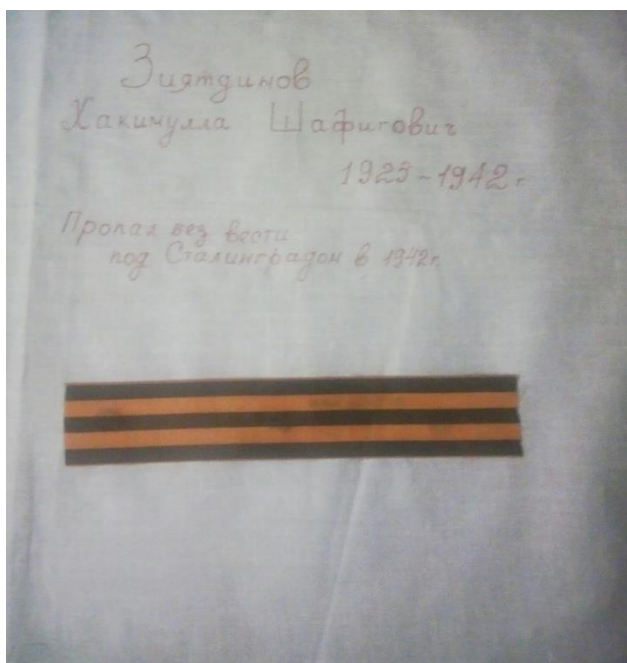 Зиятдинов
Хакимулла Шафигович
1923-1942 г.
Пропал без вести
под Сталинградом в 1942г.